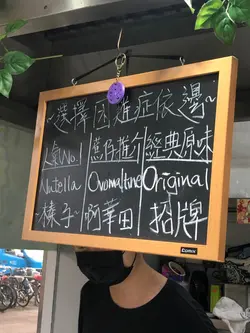 ~選擇困難症依邊~
人氣No.1 推介 經典原味
Nutella Ovomaltine Original
榛子 阿華田 招牌
Comix